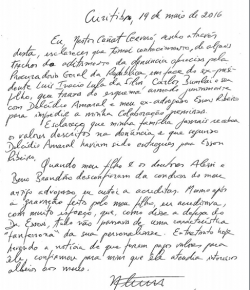 Curitiba, 19 de maio de 2016
Eu, Nestor Cuñat Cerveró, venho através
desta, esclarecer que tomei conhecimento, de alguns
trechos do aditamento da denúncia oferecida pela
Procuradoria Geral da República em face do ex-presi-
dente Luis Inácio Lula da Silva, Carlos Bumlai e seu
filho, que trama do esquema armado juntamente
com Delcídio Amaral e meu ex-advogado Edson Ribeiro
para impedir a minha colaboração premiada.
Esclareço que minha família jamais recebeu
os valores descritos na denúncia e que
Delcídio Amaral haviam sido entregues para Edson
Ribeiro.
Quando meu filho e os doutores Alessi e
Beno Brandão desconfiaram da conduta do meu
antigo advogado, eu custei a acreditar. Mesmo após
a gravação feita pelo meu filho, eu acreditava,
com muito esforço, que, como disse a defesa do
Dr. Edson, tudo não passava de uma característica
"fanfarrona" da sua personalidade. Entretanto hoje
a notícia de que foram pagos valores para
ele, confirmou para mim que ele atendia interesses
alheios aos meus.